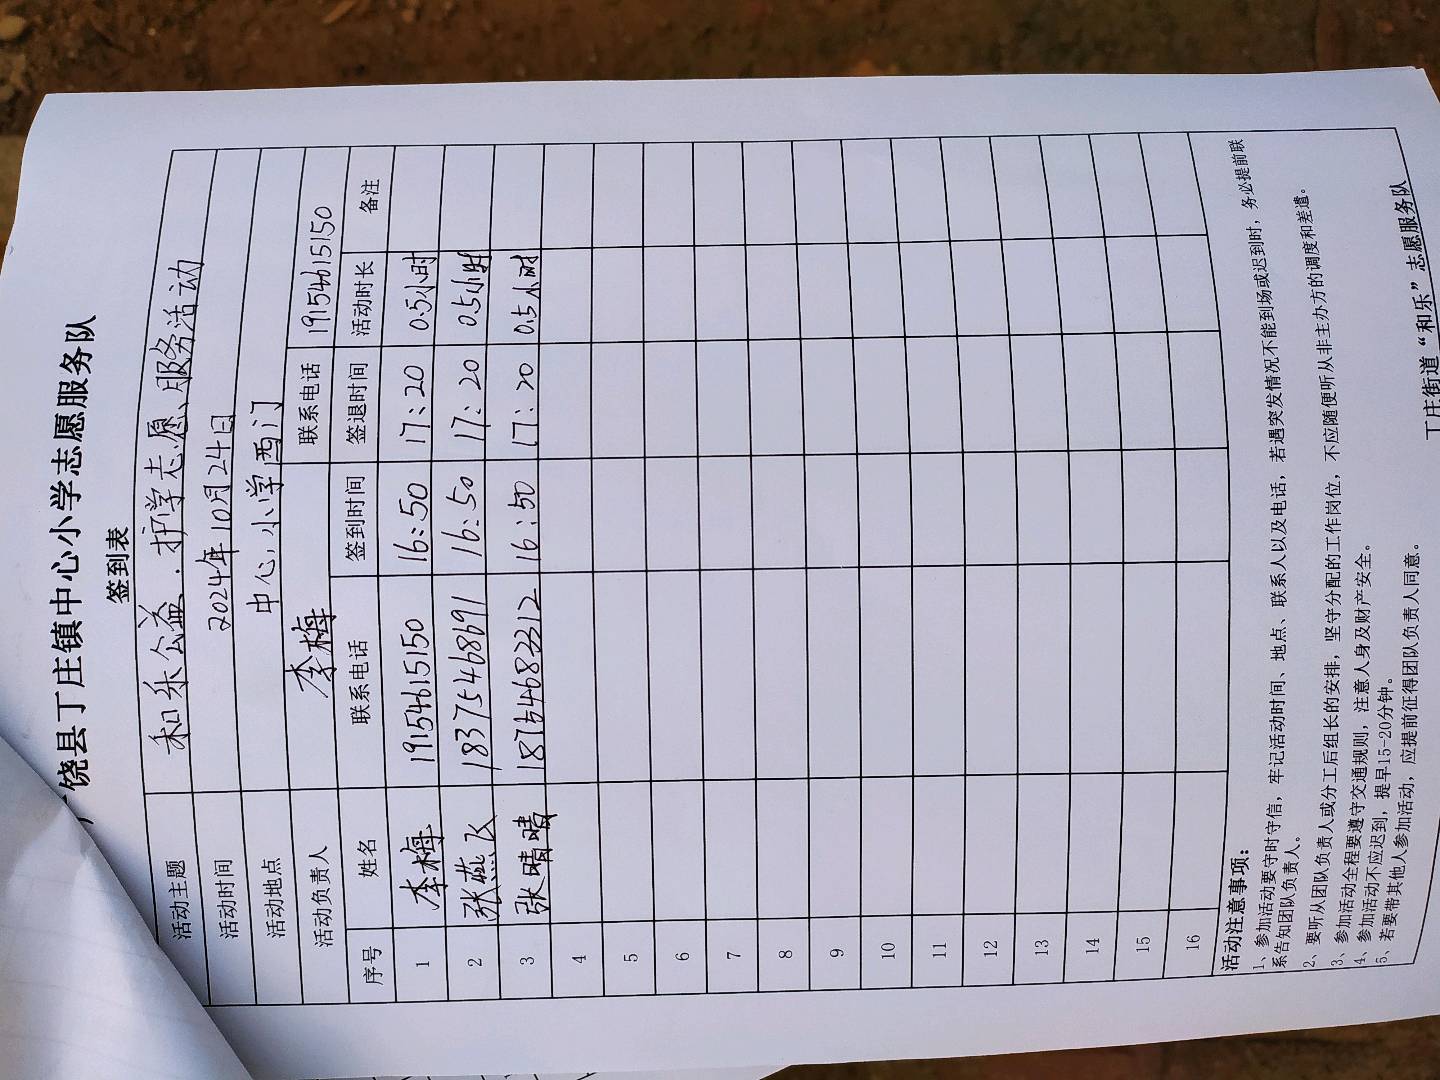 饶县丁庄镇中心小学志愿服务队
签到表
活动主题 和乐公益.护学志愿服务活动
活动时间 2024年10月24日
活动地点 中心小学西门
活动负责人 李梅 联系电话 19154615150
序号 姓名 联系电话 签到时间 签退时间 活动时长 备注
1 李梅 19154615150 16:50 17:20 0.5小时
2 张燕飞 18375468691 16:50 17:20 0.5小时
3 张晴晴 16:50 17:20 0.5小时
4
5
6
7
8
9
10
11
12
13
14
15
16
活动注意事项:
1、参加活动要守时守信,牢记活动时间、地点、联系人以及电话,若遇突发情况不能到场或迟到时,务必提前联
系告知团队负责人。
2、要听从团队负责人或分工后组长的安排,坚守分配的工作岗位,不应随便听从非主办方的调度和差遣。
3、参加活动全程要遵守交通规则,注意人身及财产安全。
4、参加活动不应迟到,提早15-20分钟。
5、若要带其他人参加活动,应提前征得团队负责人同意。
丁庄街道“和乐”志愿服务队